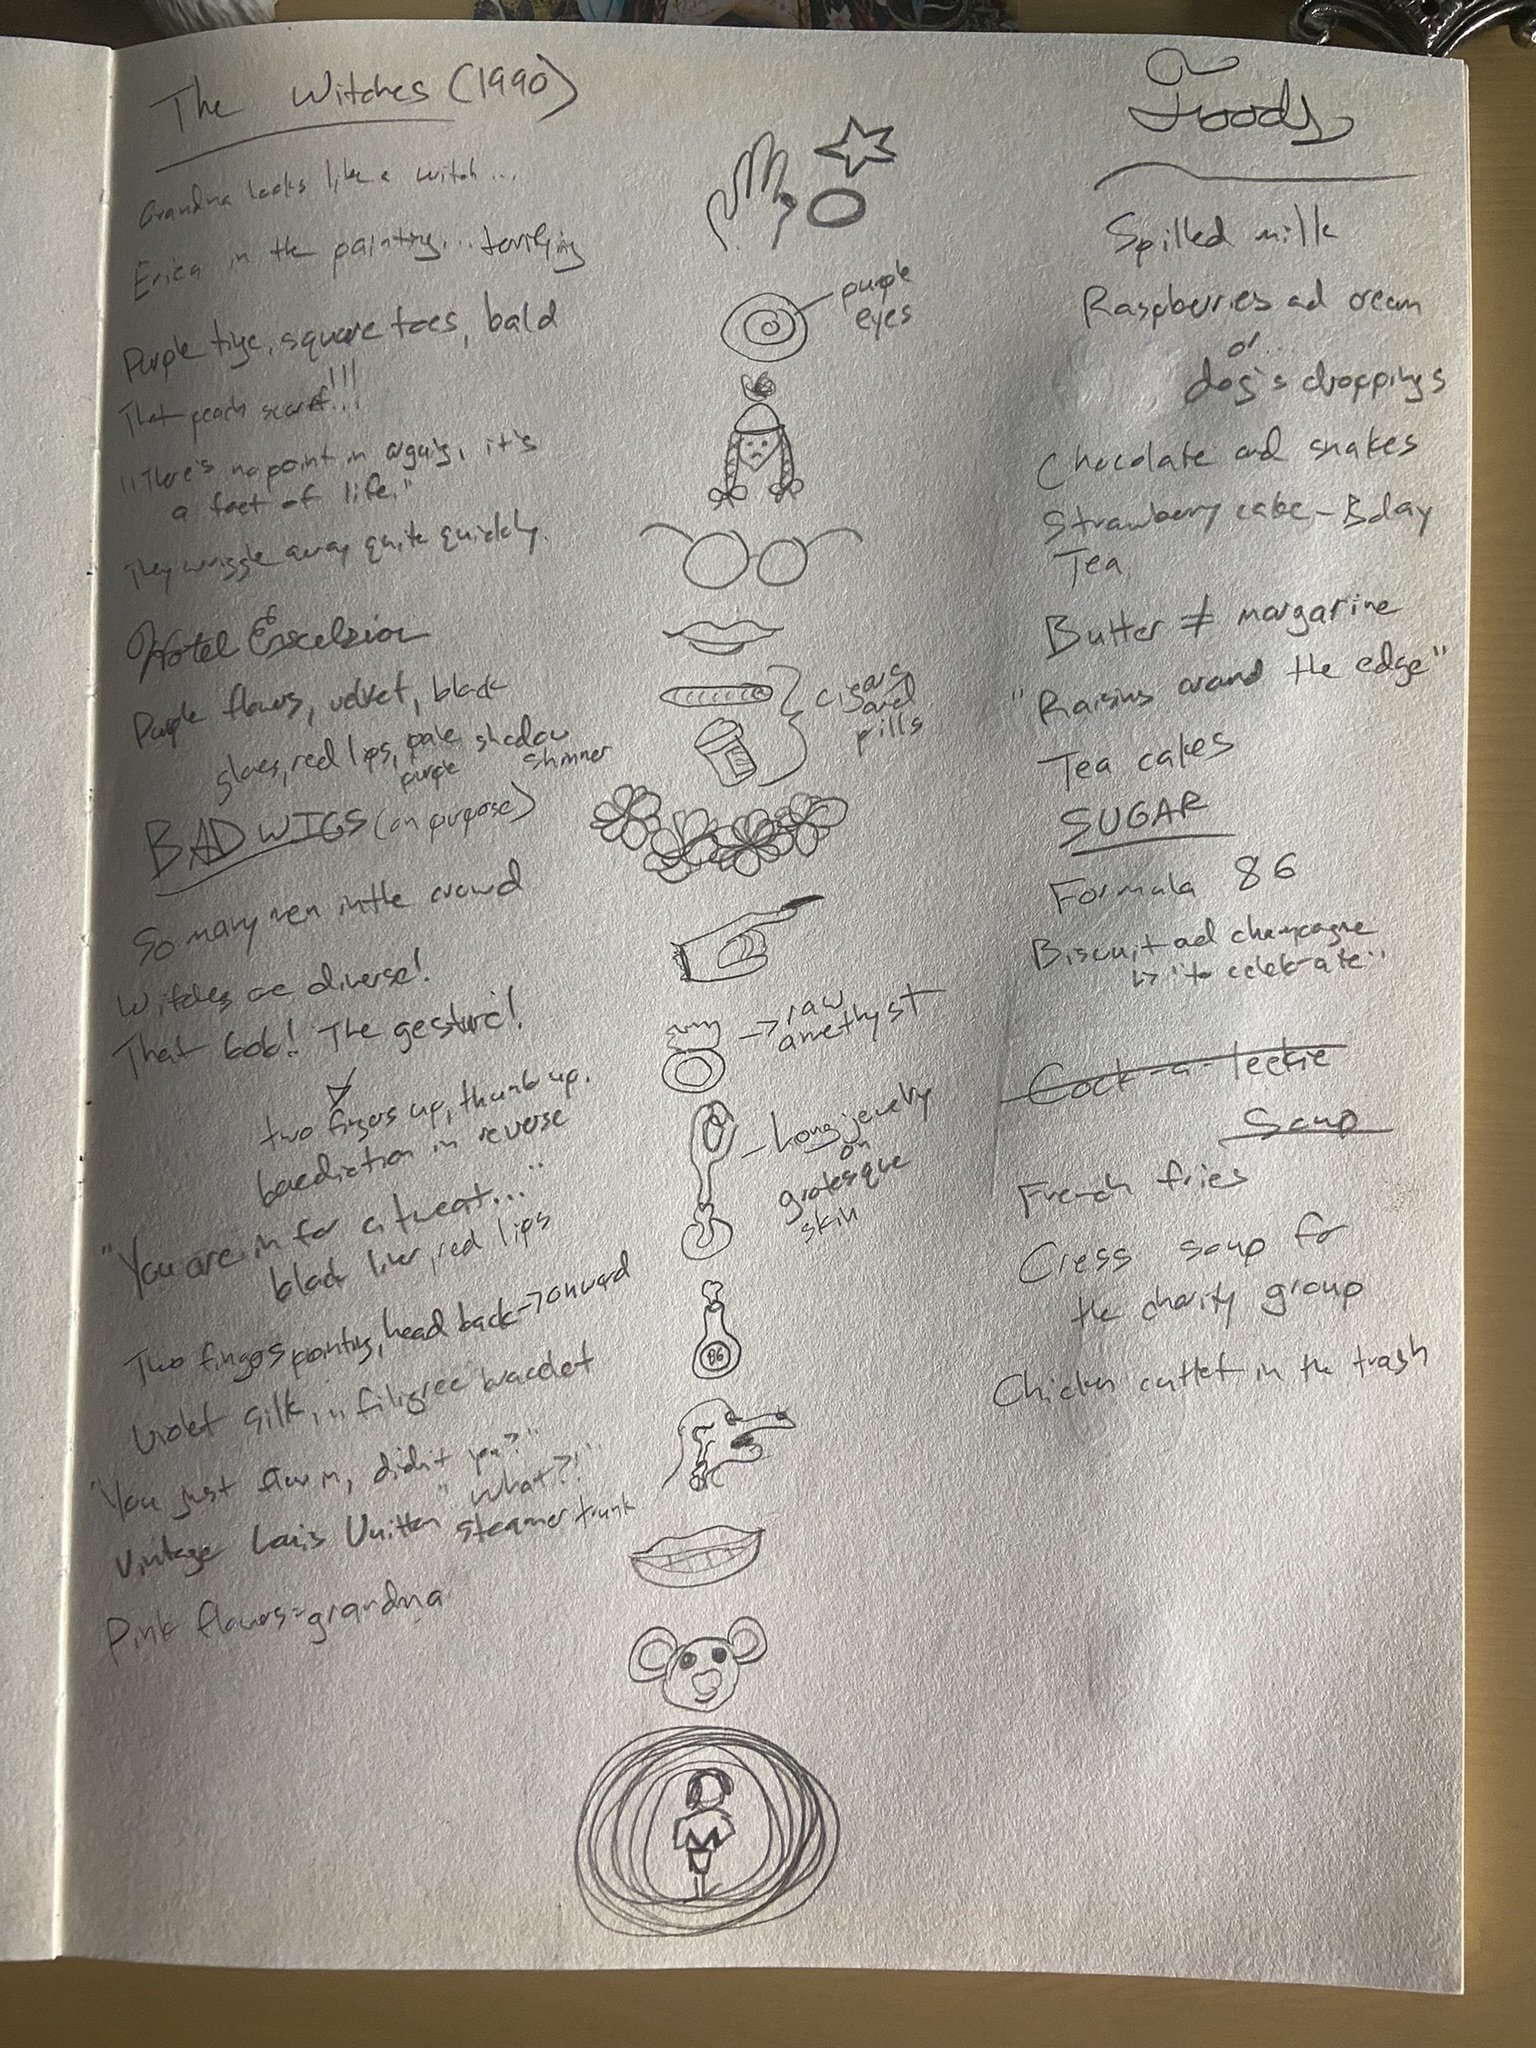 The Witches (1990)
Grandma looks like a witch...
Erica in the painting... terrifying
Purple tige, square toes, bald
That peach scarf!!!
"There's no point in arguing, it's
a fact of life."
They wriggle away quite quickly.
Hotel Excelsior
Purple flowers, velvet, black
gloves, red lips, pale shadow
purple shimmer
BAD WIGS (on purpose)
So many men in the crowd
Witches are diverse!
That bob! The gesture!
two fingers up, thumb up.
benediction in reverse
"You are in for a treat..."
black liner, red lips
Two fingers pointing, head back → onward
Violet silk, filigree bracelet
"You just flew in, didn't you?"
"What?!"
Vintage Louis Vuitton steamer trunk
Pink flowers = grandma
purple
eyes
cigars
and
pills
→ raw
amethyst
Long jewelry
on
grotesque
skin
86
Foods
Spilled milk
Raspberries and cream
or...
dog's droppings
Chocolate and snakes
Strawberry cake - Bday
Tea
Butter ≠ margarine
"Raisins around the edge"
Tea cakes
SUGAR
Formula 86
Biscuit and champagne
↳ "to celebrate"
Cock-a-leekie
Soup
French fries
Cress soup for
the charity group
Chicken cutlet in the trash